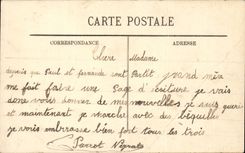 CARTE POSTALE
CORRESPONDANCE
ADRESSE
Chere Madame
depuis que Paul et fernande sont Partit grand mère
me fait faire une Page d'écriture je vais
vous donner de mes nouvelles je suis gueri
et maintenant je marche avec des béquilles
je vous embrasse bien fort tous les trois